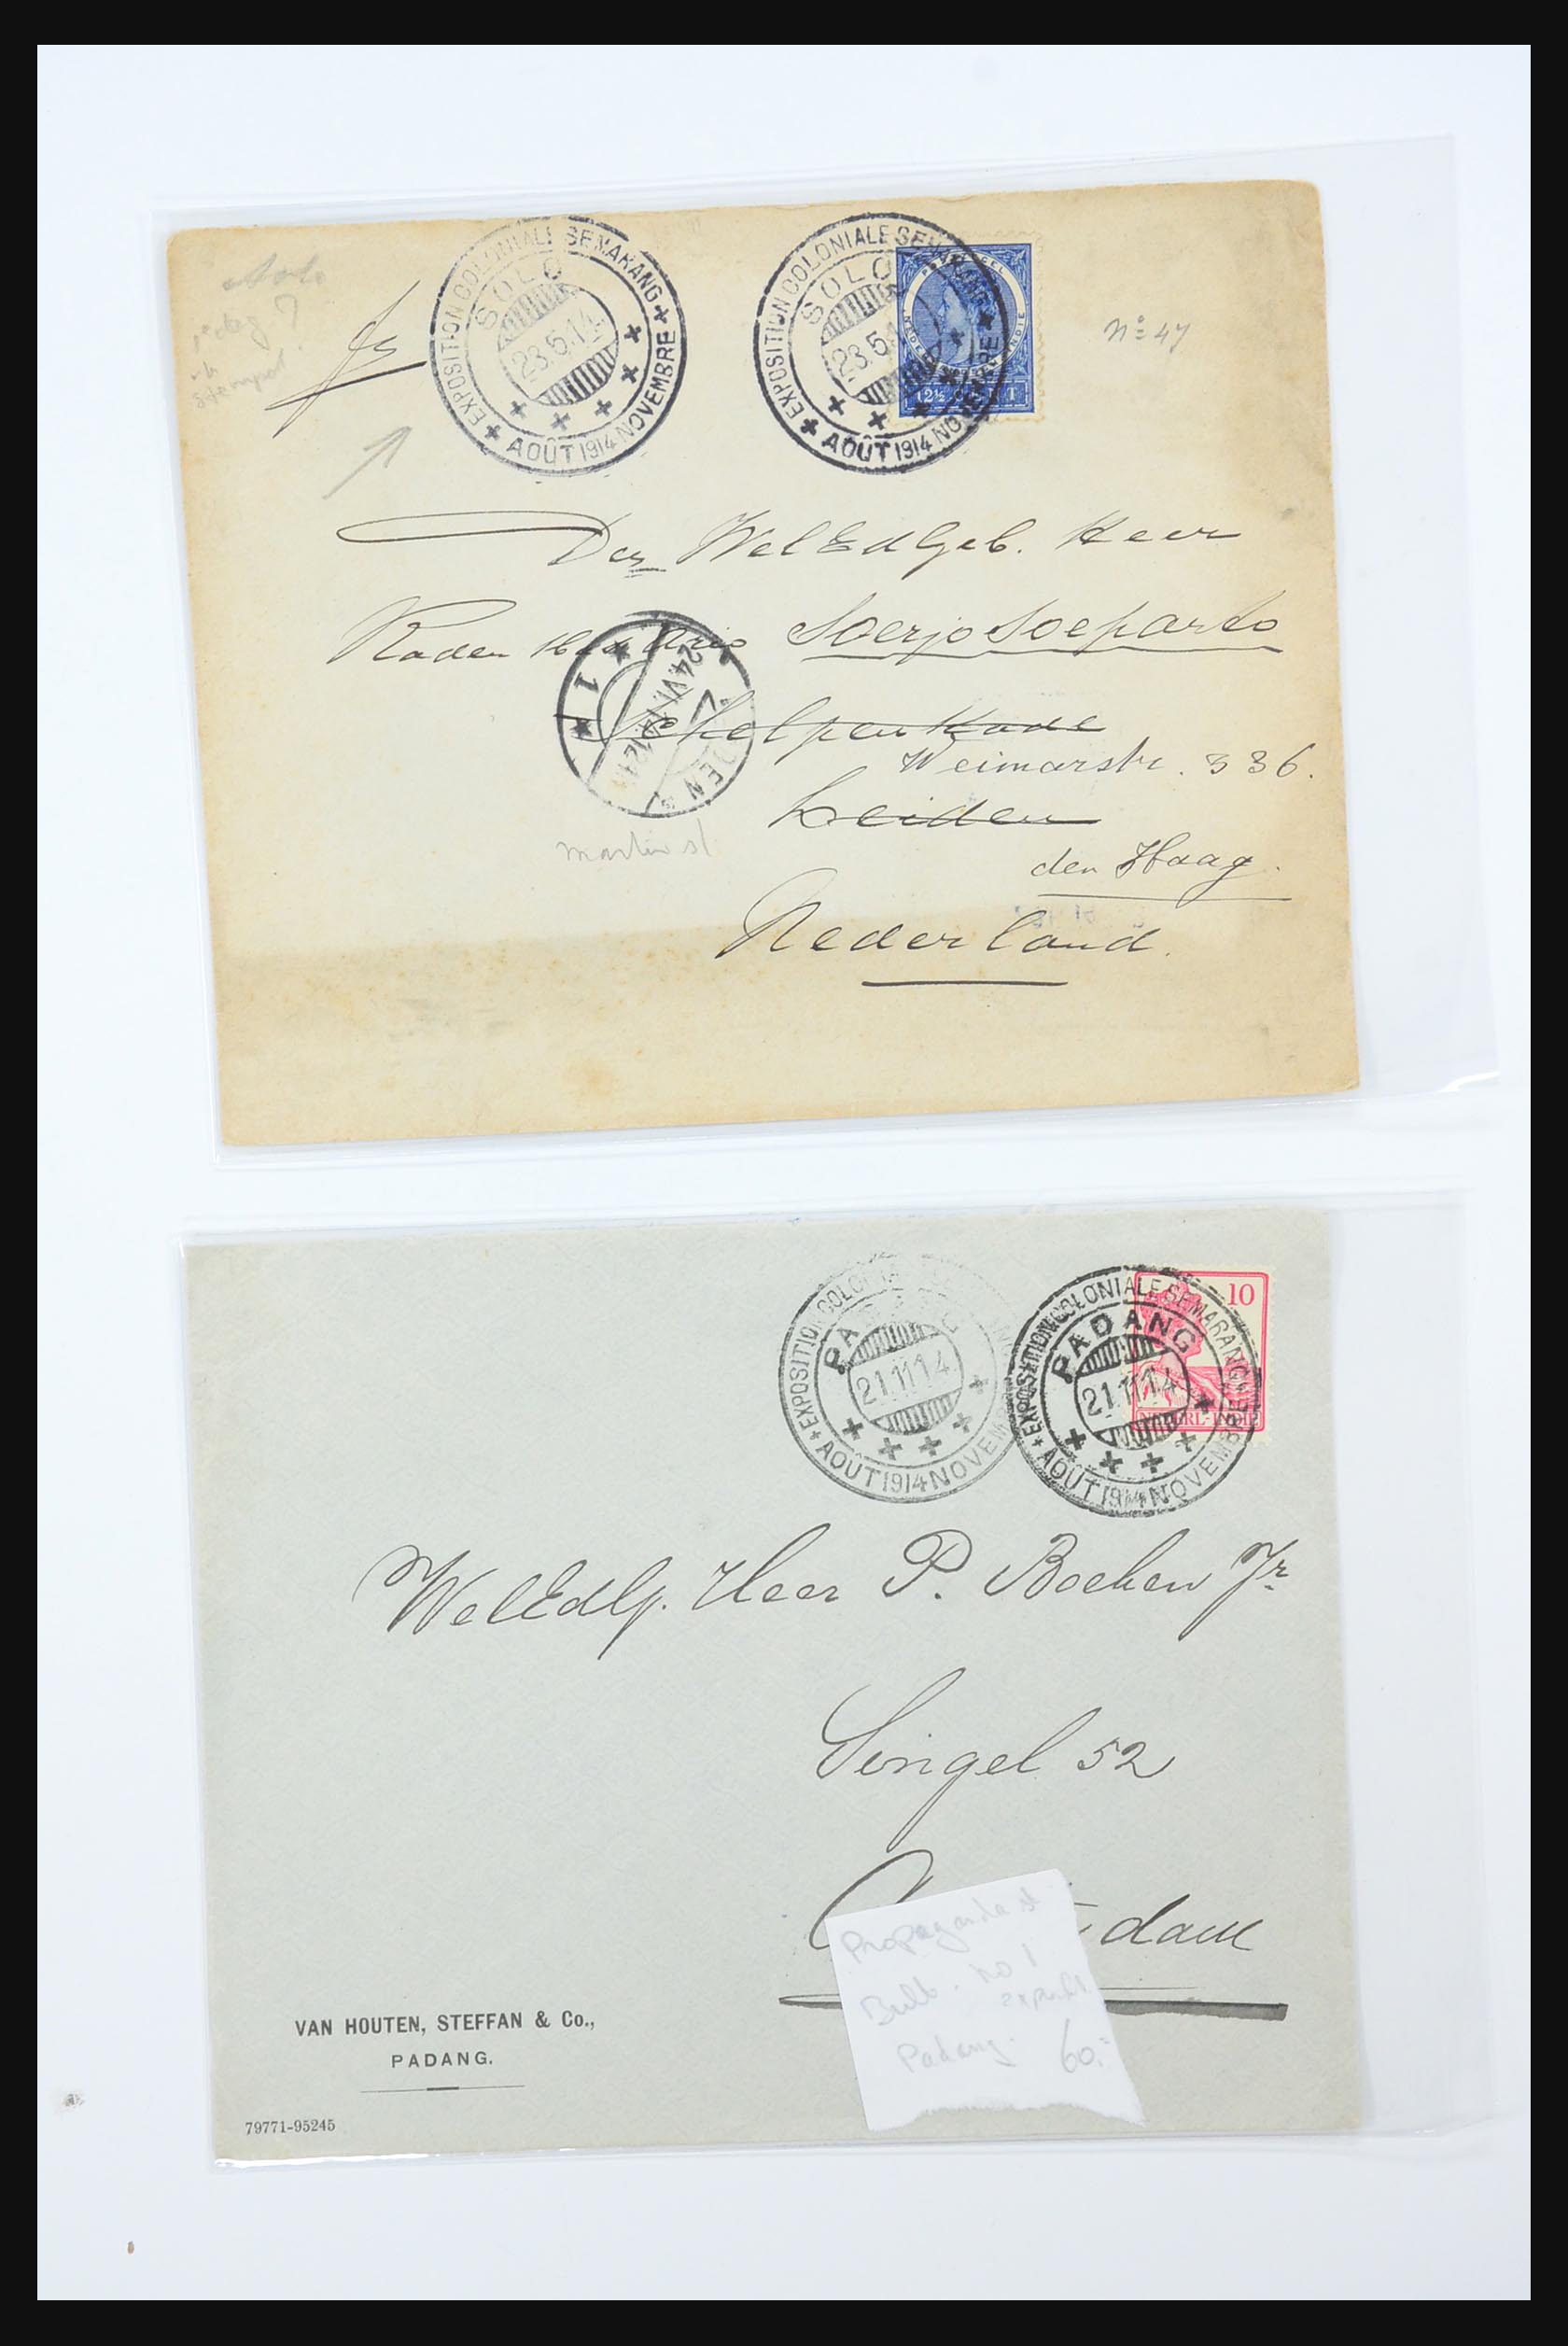 Solo
1e dag?
EXPOSITION COLONIALE SEMARANG
SOLO
23.5.14
AOÛT 1914 NOVEMBRE
EXPOSITION COLONIALE SEMARANG
SOLO
23.5.1
AOÛT 1914 NOVEMBRE
POSTZEGEL
12½
No 47
Den WelEdlGeb. Heer
Raden Mas Ario Soerjo Soeparto
24.VI.14.12
1
Schelpenkade
Weimarstr. 336.
Leiden
den Haag.
Nederland.
EXPOSITION COLONIALE
PADANG
21.11.14
AOÛT 1914 NOVEM
EXPOSITION COLONIALE SEMARANG
PADANG
21.11.14
AOÛT 1914 NOVEMBRE
10
NEDERL-INDIË
WelEdlg. Heer P. Boeken Jr
Singel 52
dam
Propaganda st
Bult. no 1
Padang. 60,=
VAN HOUTEN, STEFFAN & Co.,
PADANG.
79771-95245